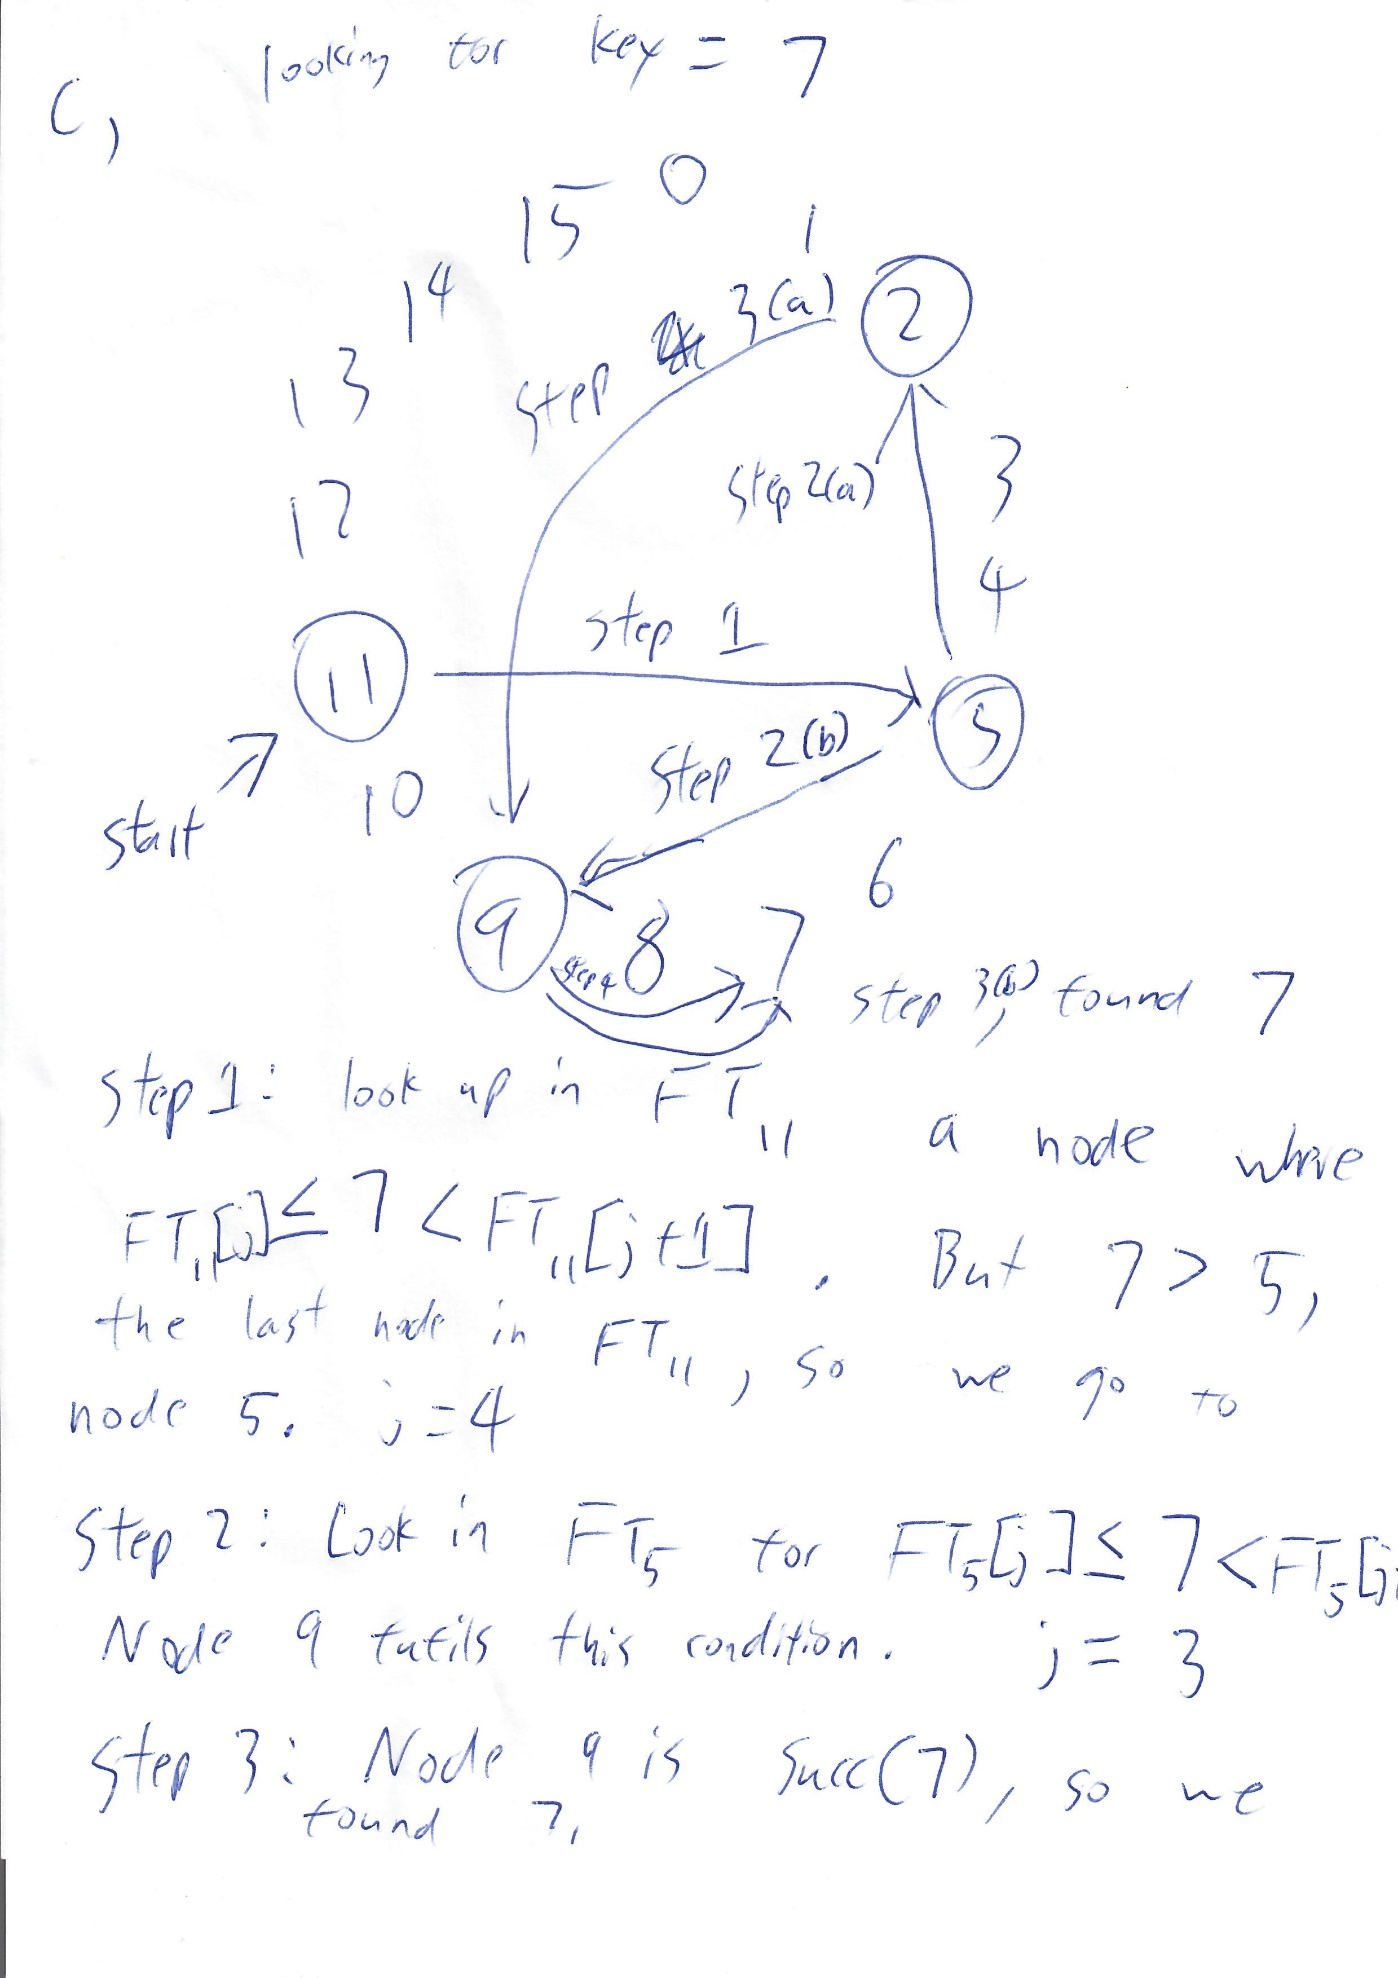 looking for key = 7
C,
15 0 1
14
13
12
2
step 3(a)
step 2(a)
3
4
step 1
11
5
start
10
step 2(b)
9
8
7
6
step 4
step 3(b), found 7
Step 1: look up in FT₁₁ a node where
FT₁₁[j] ≤ 7 < FT₁₁[j+1]. But 7 > 5,
the last node in FT₁₁, so we go to
node 5. j = 4
Step 2: Look in FT₅ for FT₅[j] ≤ 7 < FT₅[j
Node 9 fufils this condition. j = 3
Step 3: Node 9 is succ(7), so we
found 7.